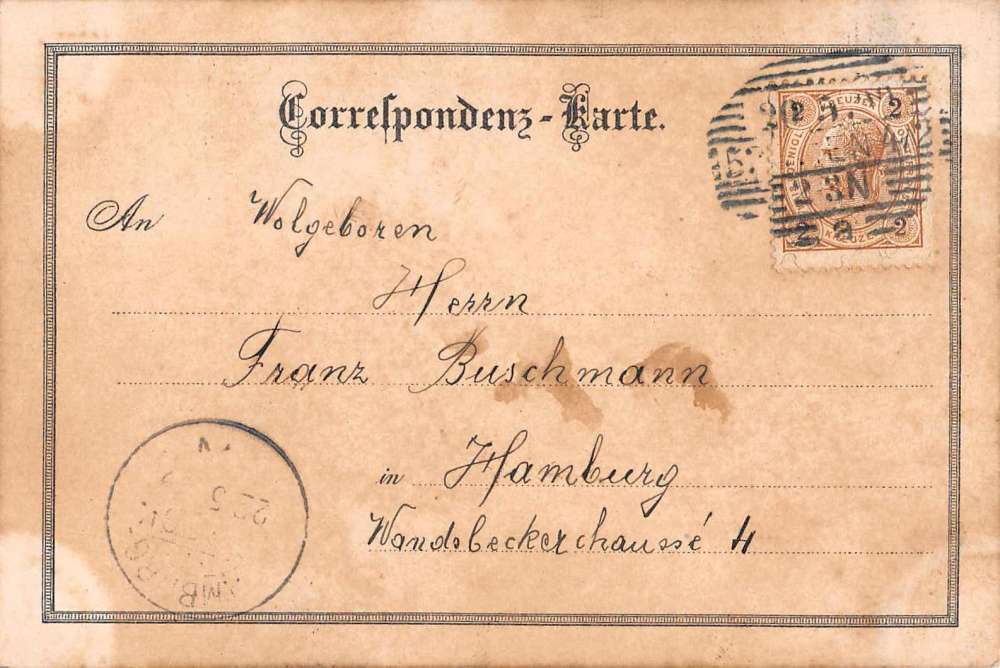 Correspondenz-Karte.
An Wolgeboren
Herrn
Franz Buschmann
in Hamburg
Wandsbeckerchaussé 4
2 2
2 2
3N
2 a
22 5